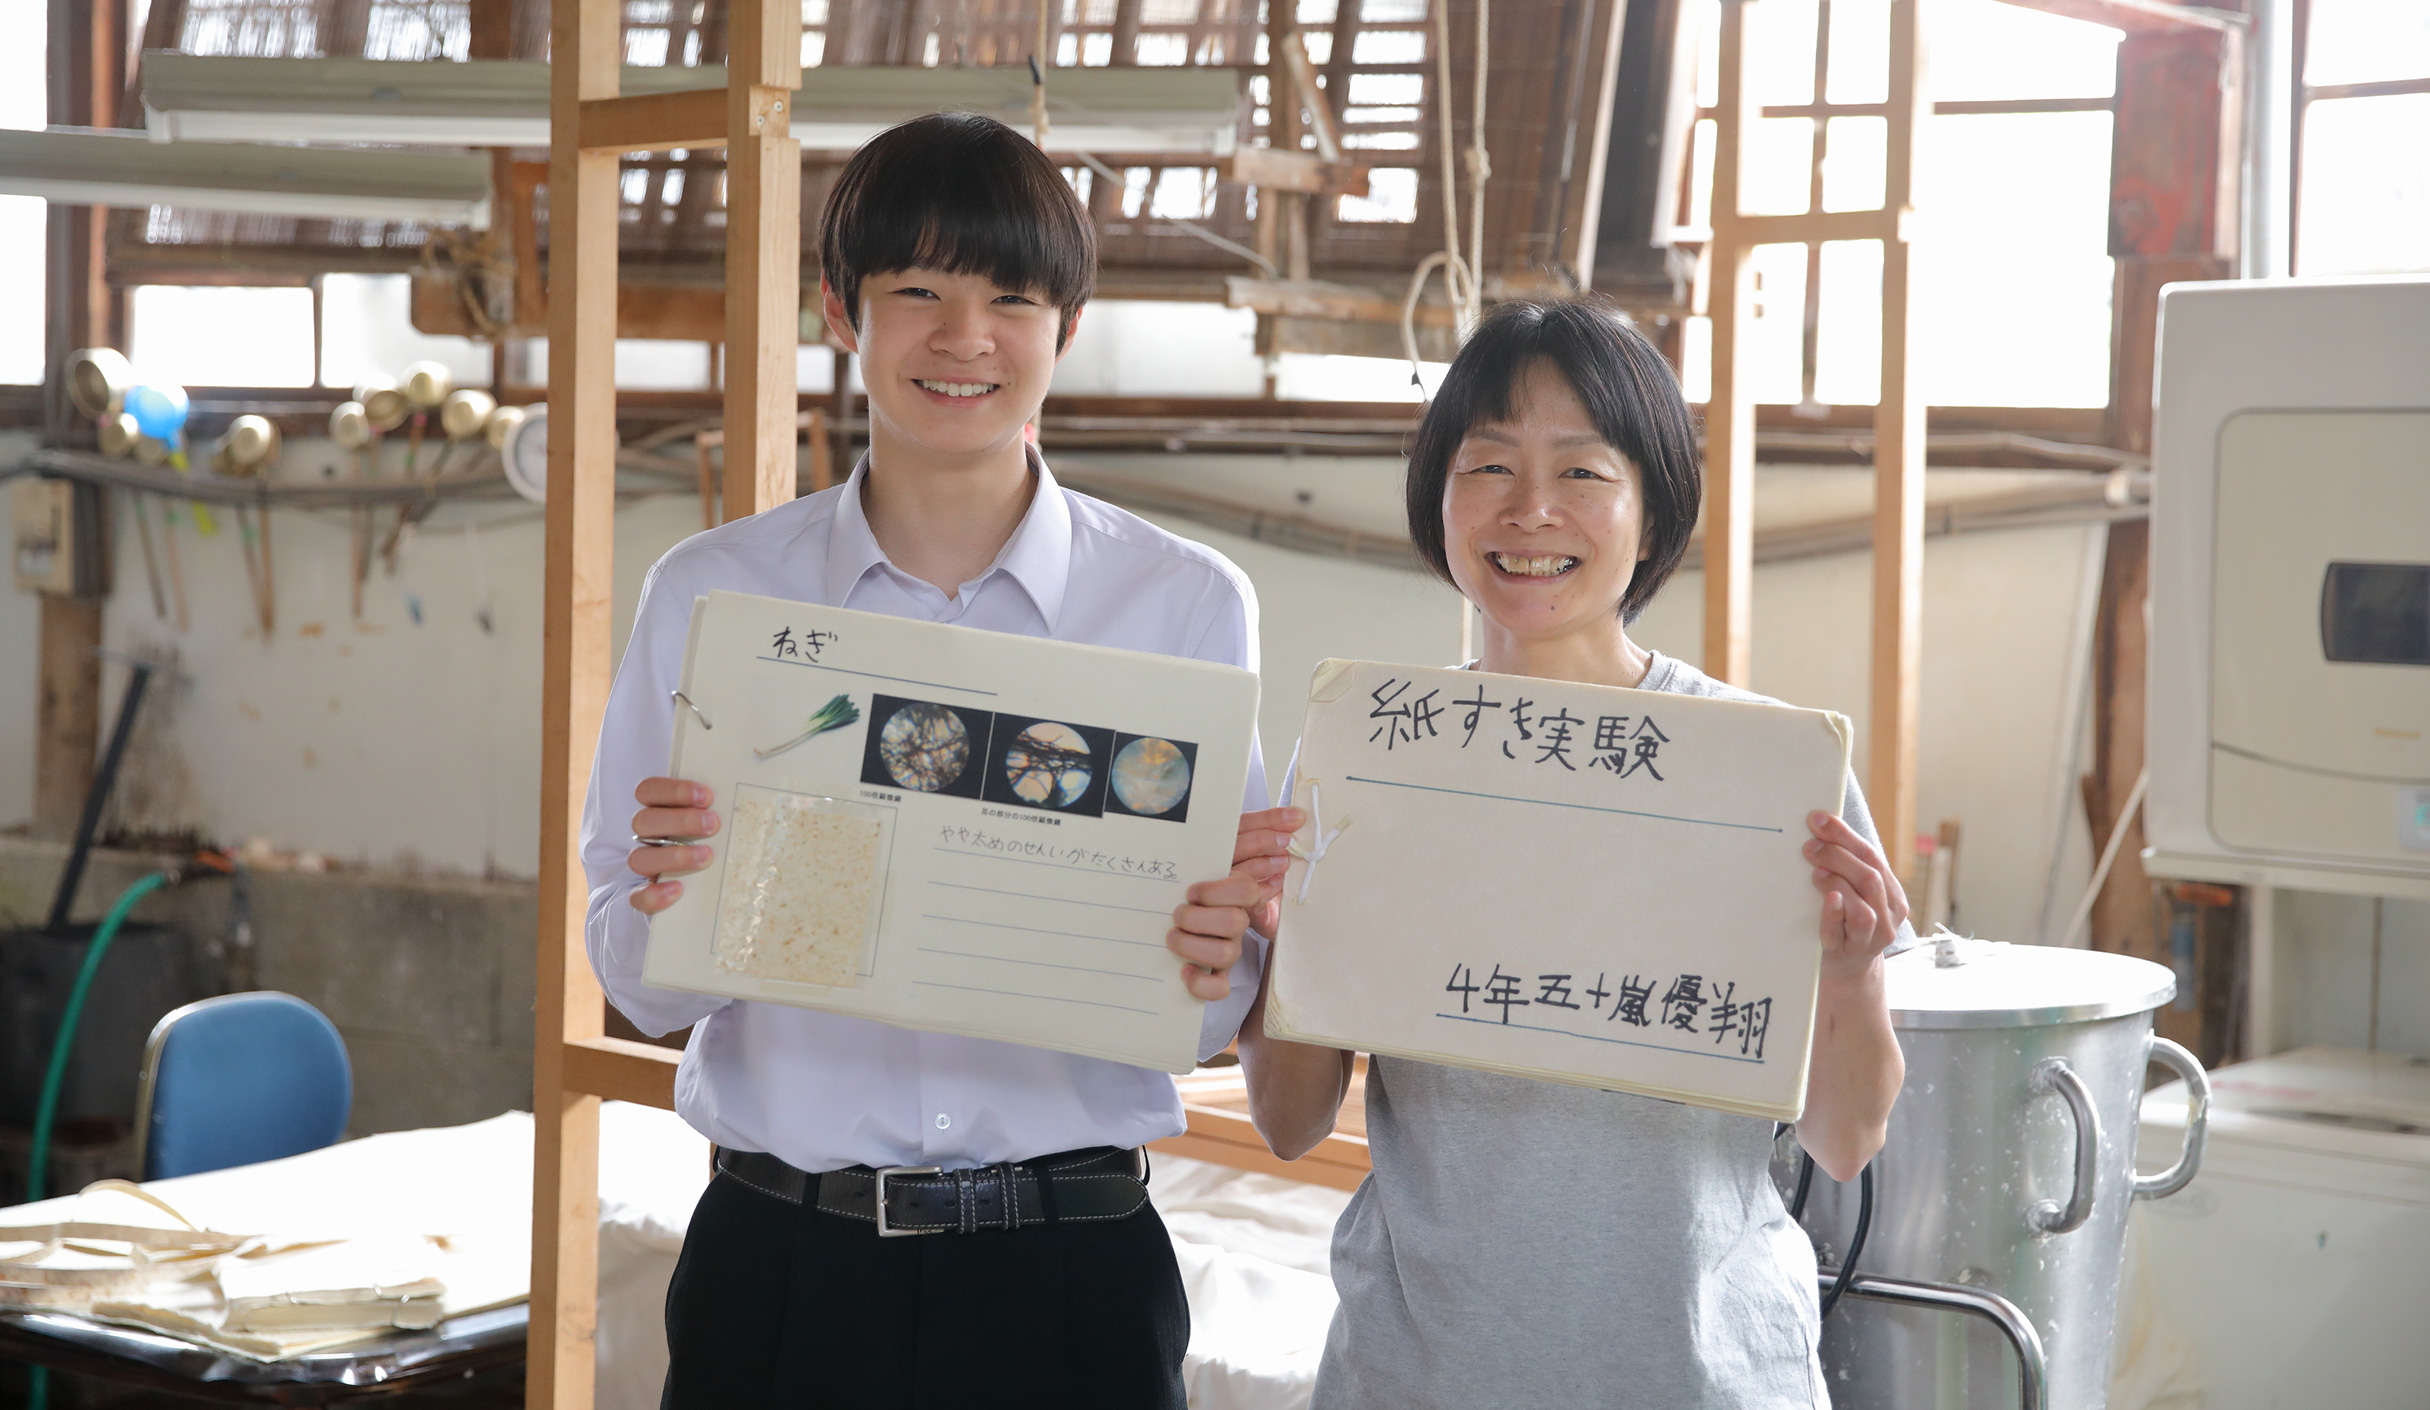 ねぎ
100倍顕微鏡
瓦の部分の100倍顕微鏡
やや太めのせんいがたくさんある。
紙すき実験
4年五十嵐優翔